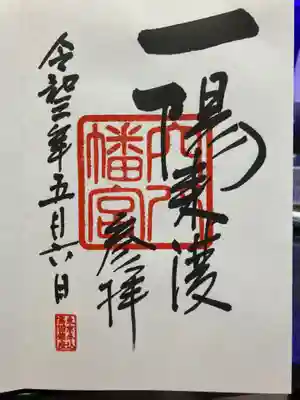 一陽来復
穴八幡宮
参拝
令和三年五月六日